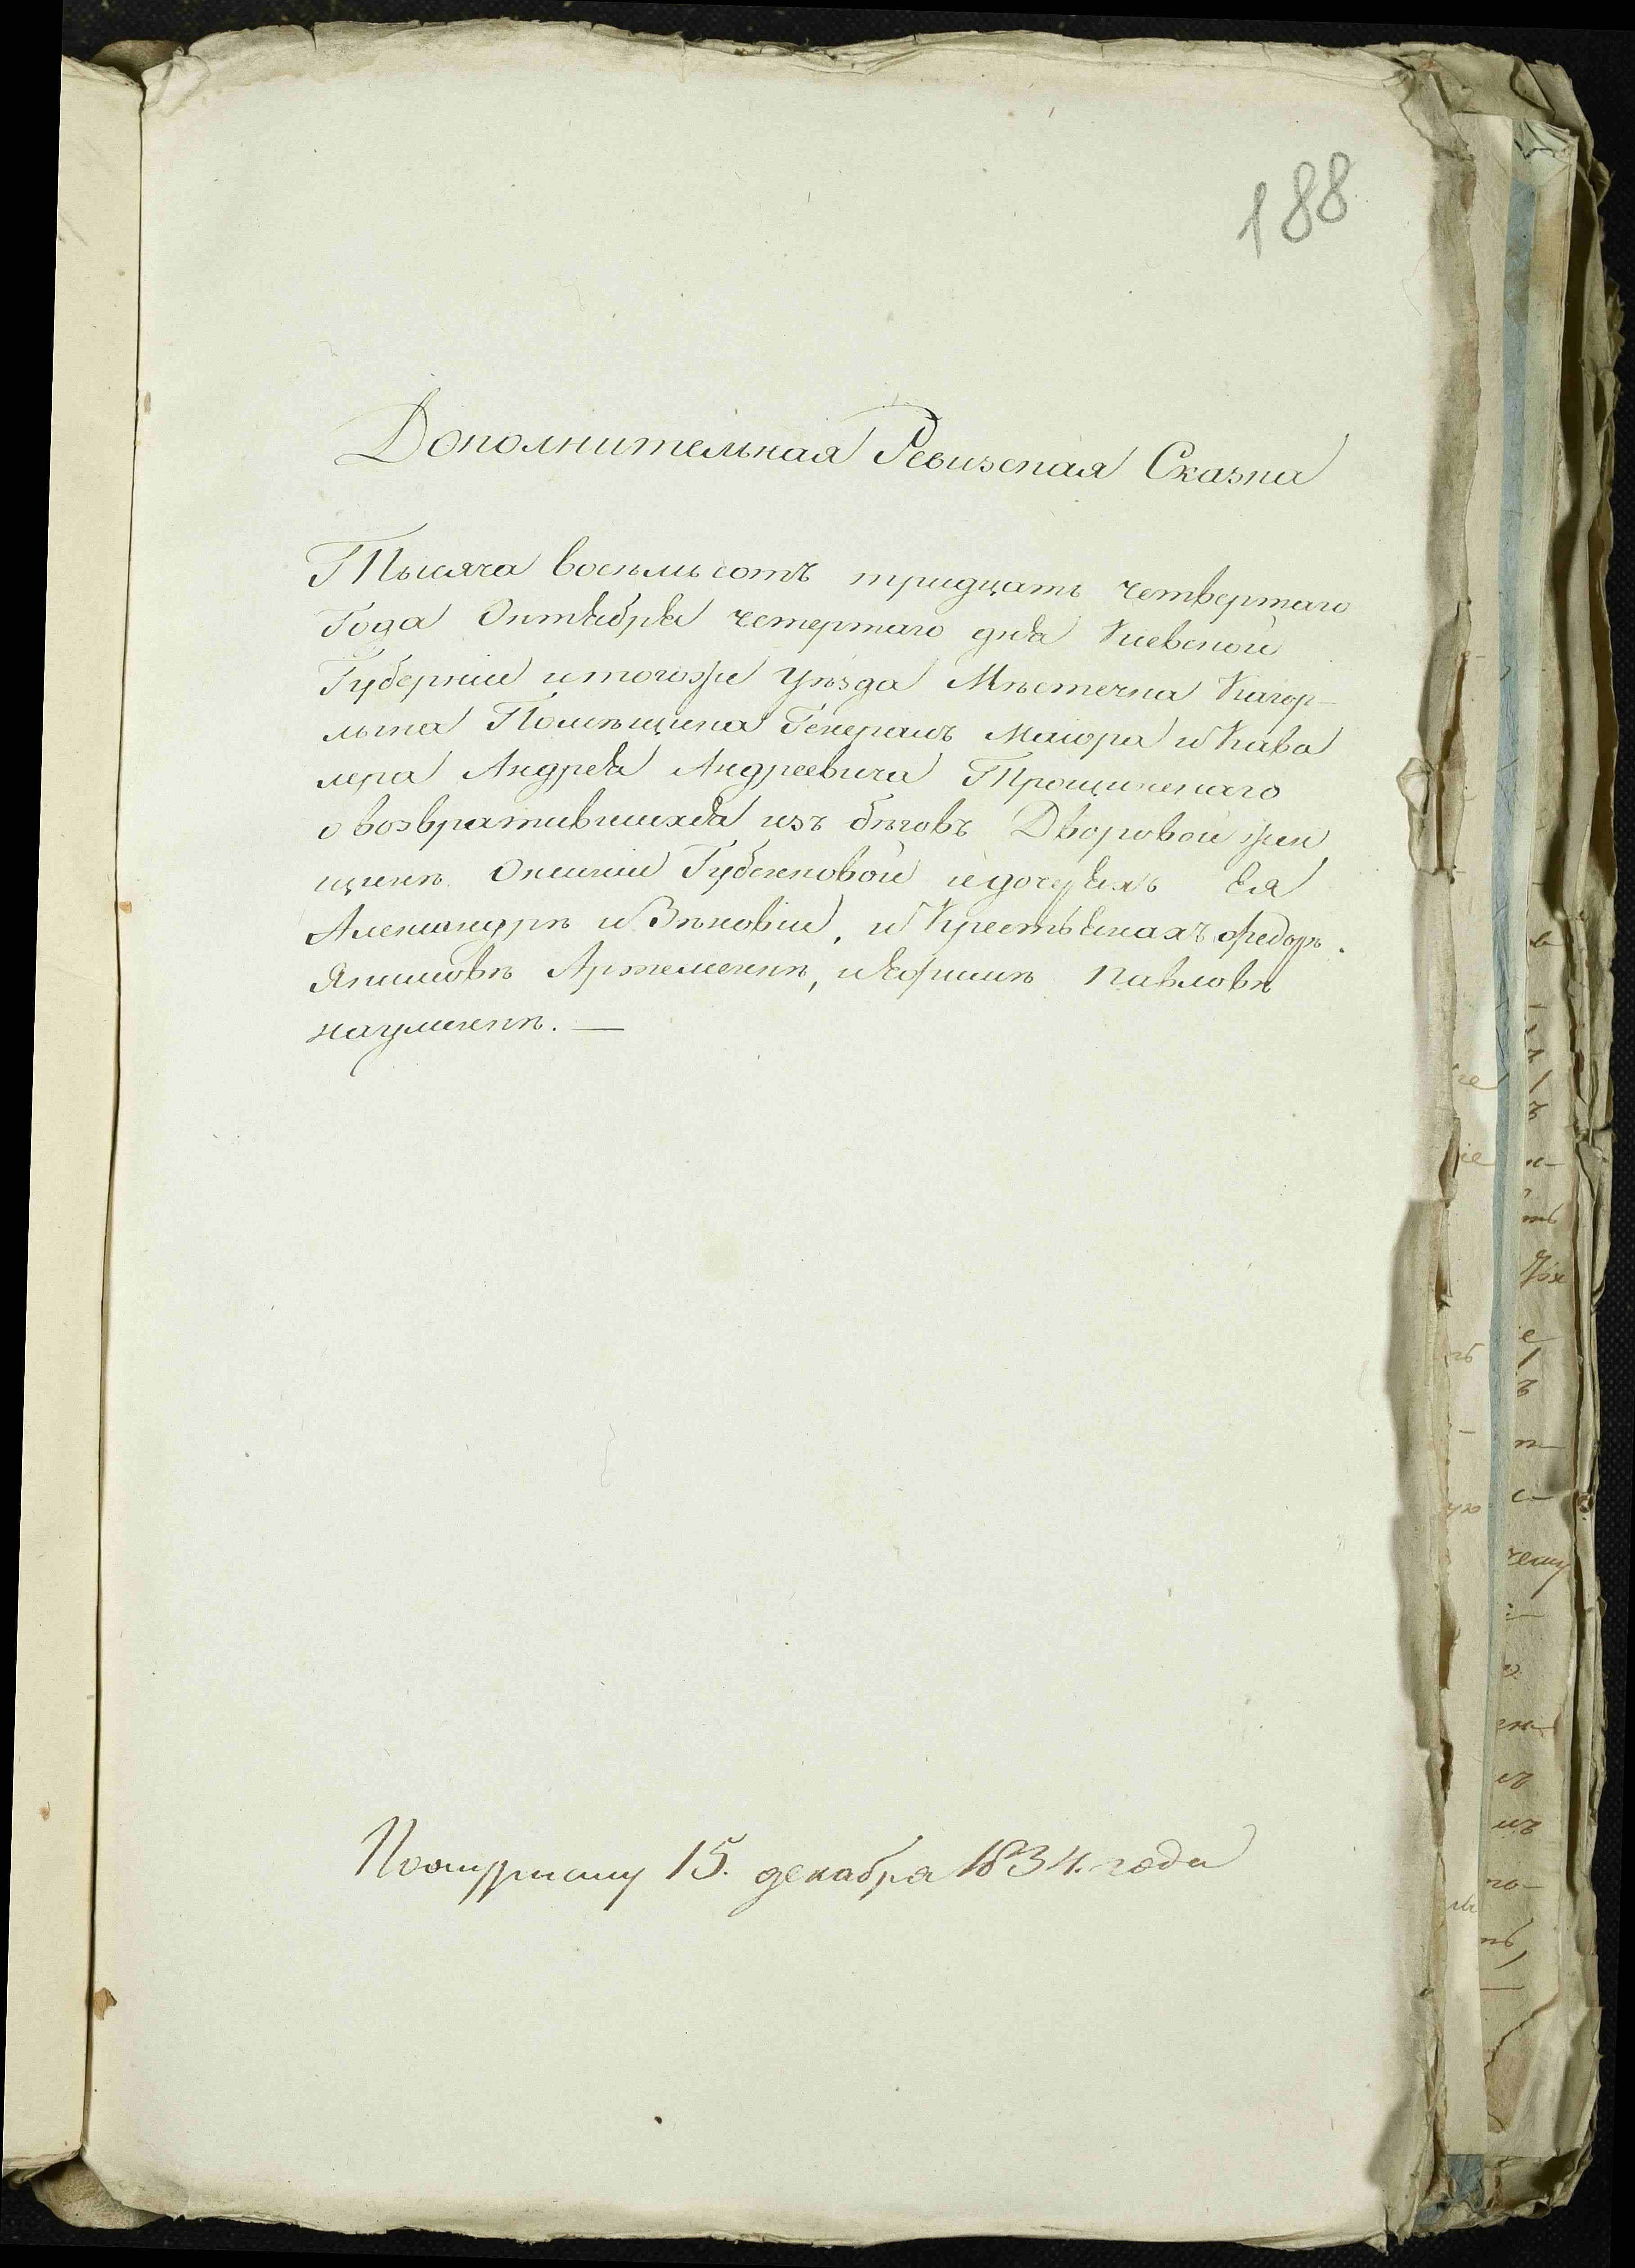 188
Дополнительная Ревизская Сказка
Тысяча восемьсотъ тридцать четвертаго
Года Октября четертаго дня Киевской
Губерніи итогоже уѣзда Мѣстечка Кагор-
лыка Помѣщика Генералъ Маіора и Кава
лера Андрея Андреевича Трощинскаго
о возвратившихся изъ бѣговъ Дворовой жен
щинѣ Оксиніи Губенковой идочеряхъ Ея
Александрѣ и Зѣновіи, и Крестьянахъ Федорѣ
Якимовѣ Артеменкѣ, и Павловѣ
науменкѣ. —
15. декабря 1834. года